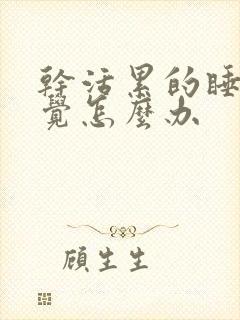 幹活累的睡
覺怎麼办
顧生生